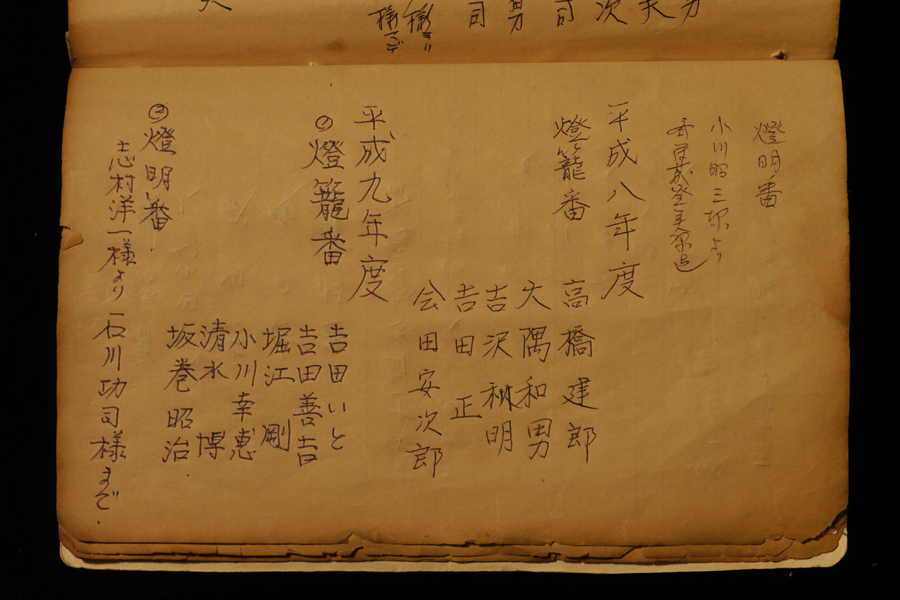 燈明番
小川昭三郎より
平成八年度
燈籠番
高橋建郎
大隅和男
吉沢 明
吉田 正
会田安次郎
平成九年度
① 燈籠番
吉田いと
吉田善吉
堀江 剛
小川幸恵
清水 博
坂巻昭治.
② 燈明番.
志村洋一様より 石川功司様まで.